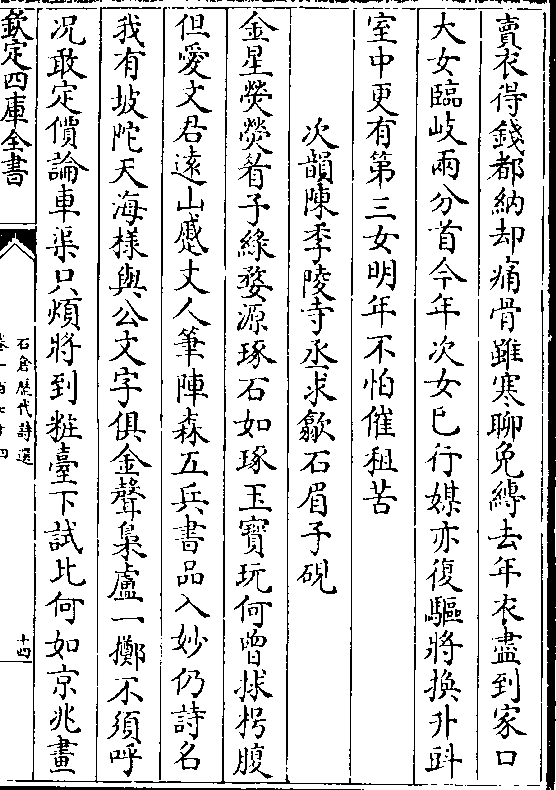 賣衣得錢都納却病骨雖寒聊免縛去年衣盡到家口
大女臨岐兩分首今年次女已行媒亦復驅將換升㪷
室中更有第三女明年不怕催租苦
次韻陳季陵寺丞求歙石眉子硯
金星熒熒眉子緑婺源琢石如琢玉寶玩何曾捄枵腹
但愛文君逺山蹙丈人筆陣森五兵書品入妙仍詩名
我有坡陀天海様與公文字俱金聲梟盧一擲不須呼
况敢定價論車渠只煩將到粧臺下試比何如京兆畫
欽定四庫全書
石倉歴代詩選
十四